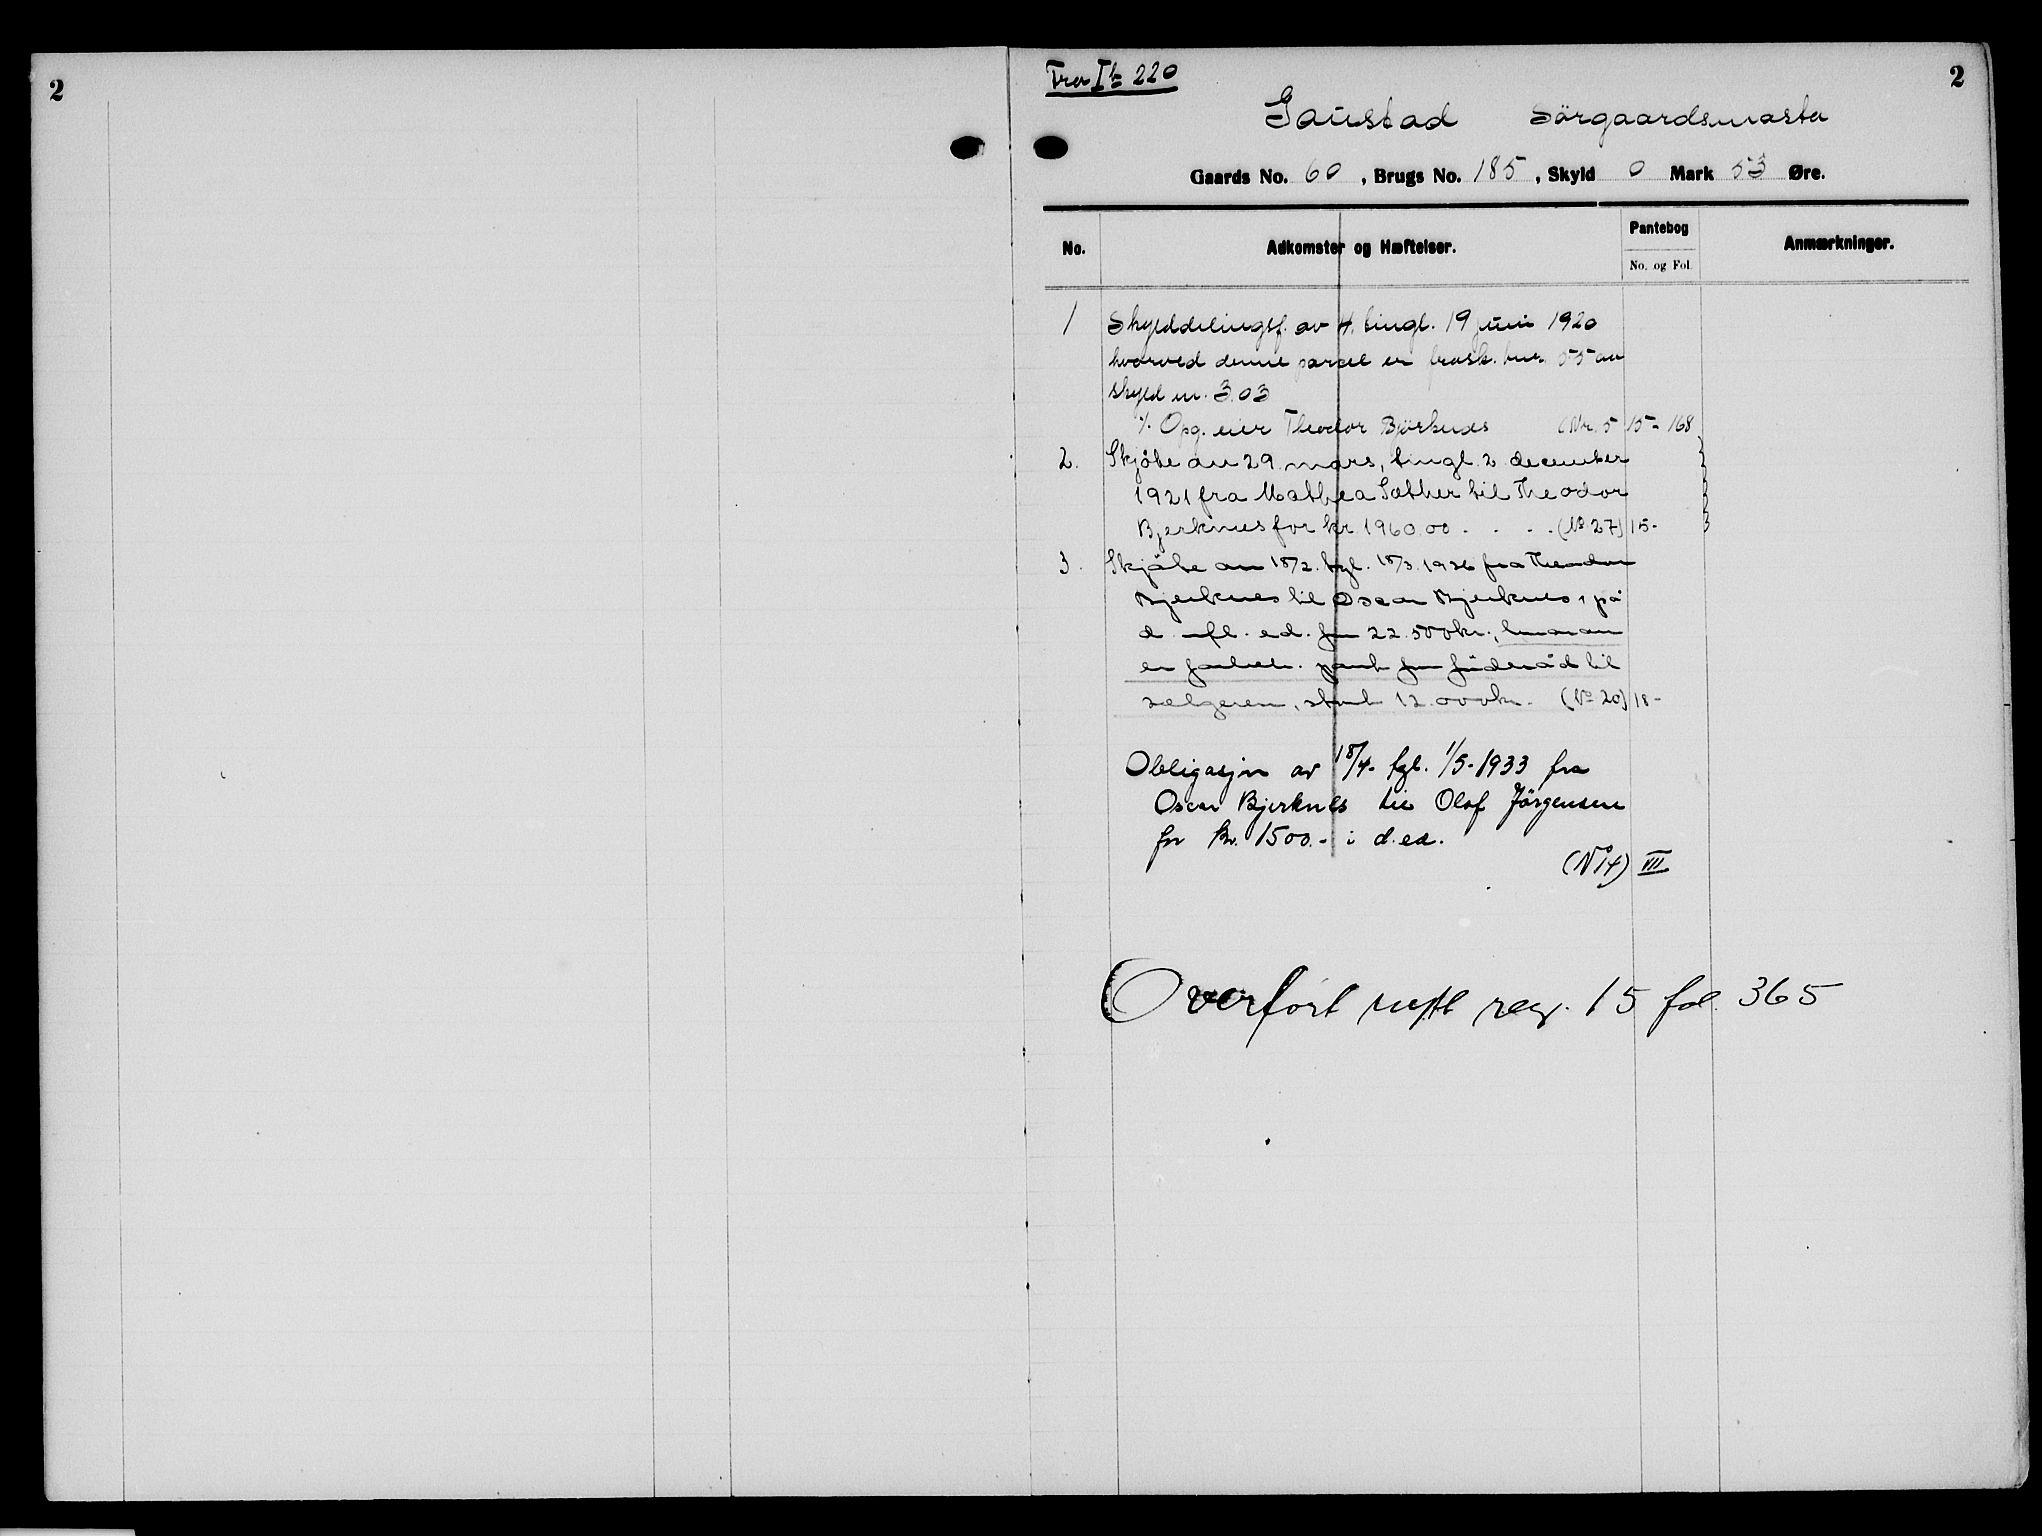 2
2
Fra I b 220
Gaustad Sörgaardsmasta
Gaards No. 60, Brugs No. 185, Skyld 0 Mark 53 Øre.
No. Adkomster og Hæftelser. Pantebog Anmærkninger.
No. og Fol.
1 Skylddelingsf. av H. tingl. 19 juni 1920
hvorved denne parcel er frask. bnr. 55 av
skyld m. 3.03
% Opg. eier Theodor Björknes (Nr. 5 15 - 168
2. Skjöte av 29. mars, tingl. 2 december
1921 fra Mathea Sæther til Theodor
Bjerknes for kr 1960.00 . . . . (No 27) 15 -
3. Skjöte av 18/2. tgl. 18/3. 1926 fra Theodor
Bjerknes til Oscar Bjerknes, på
d. efl. ed. for 22.500 kr., hvorav
er forbeh. pant for föderåd til
selgeren, stort 12.000 kr. (No 20) 18 -
Obligasjon av 18/4. tgl. 1/5. 1933 fra
Oscar Bjerknes til Olaf Jörgensen
for kr. 1500.- i d. ed.
(No 14) VII
Overfört reg. 15 fol. 365